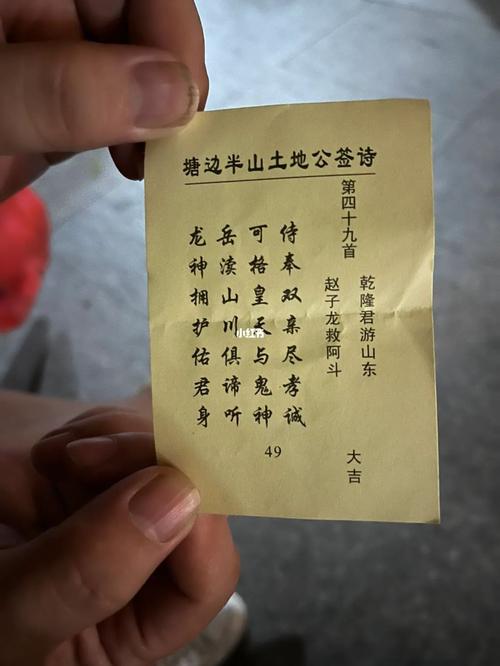 塘边半山土地公签诗
第四十九首
乾隆君游山东
赵子龙救阿斗
大吉
侍奉双亲尽孝诚
可格皇天与鬼神
岳渎山川俱谛听
龙神拥护佑君身
49
小红书